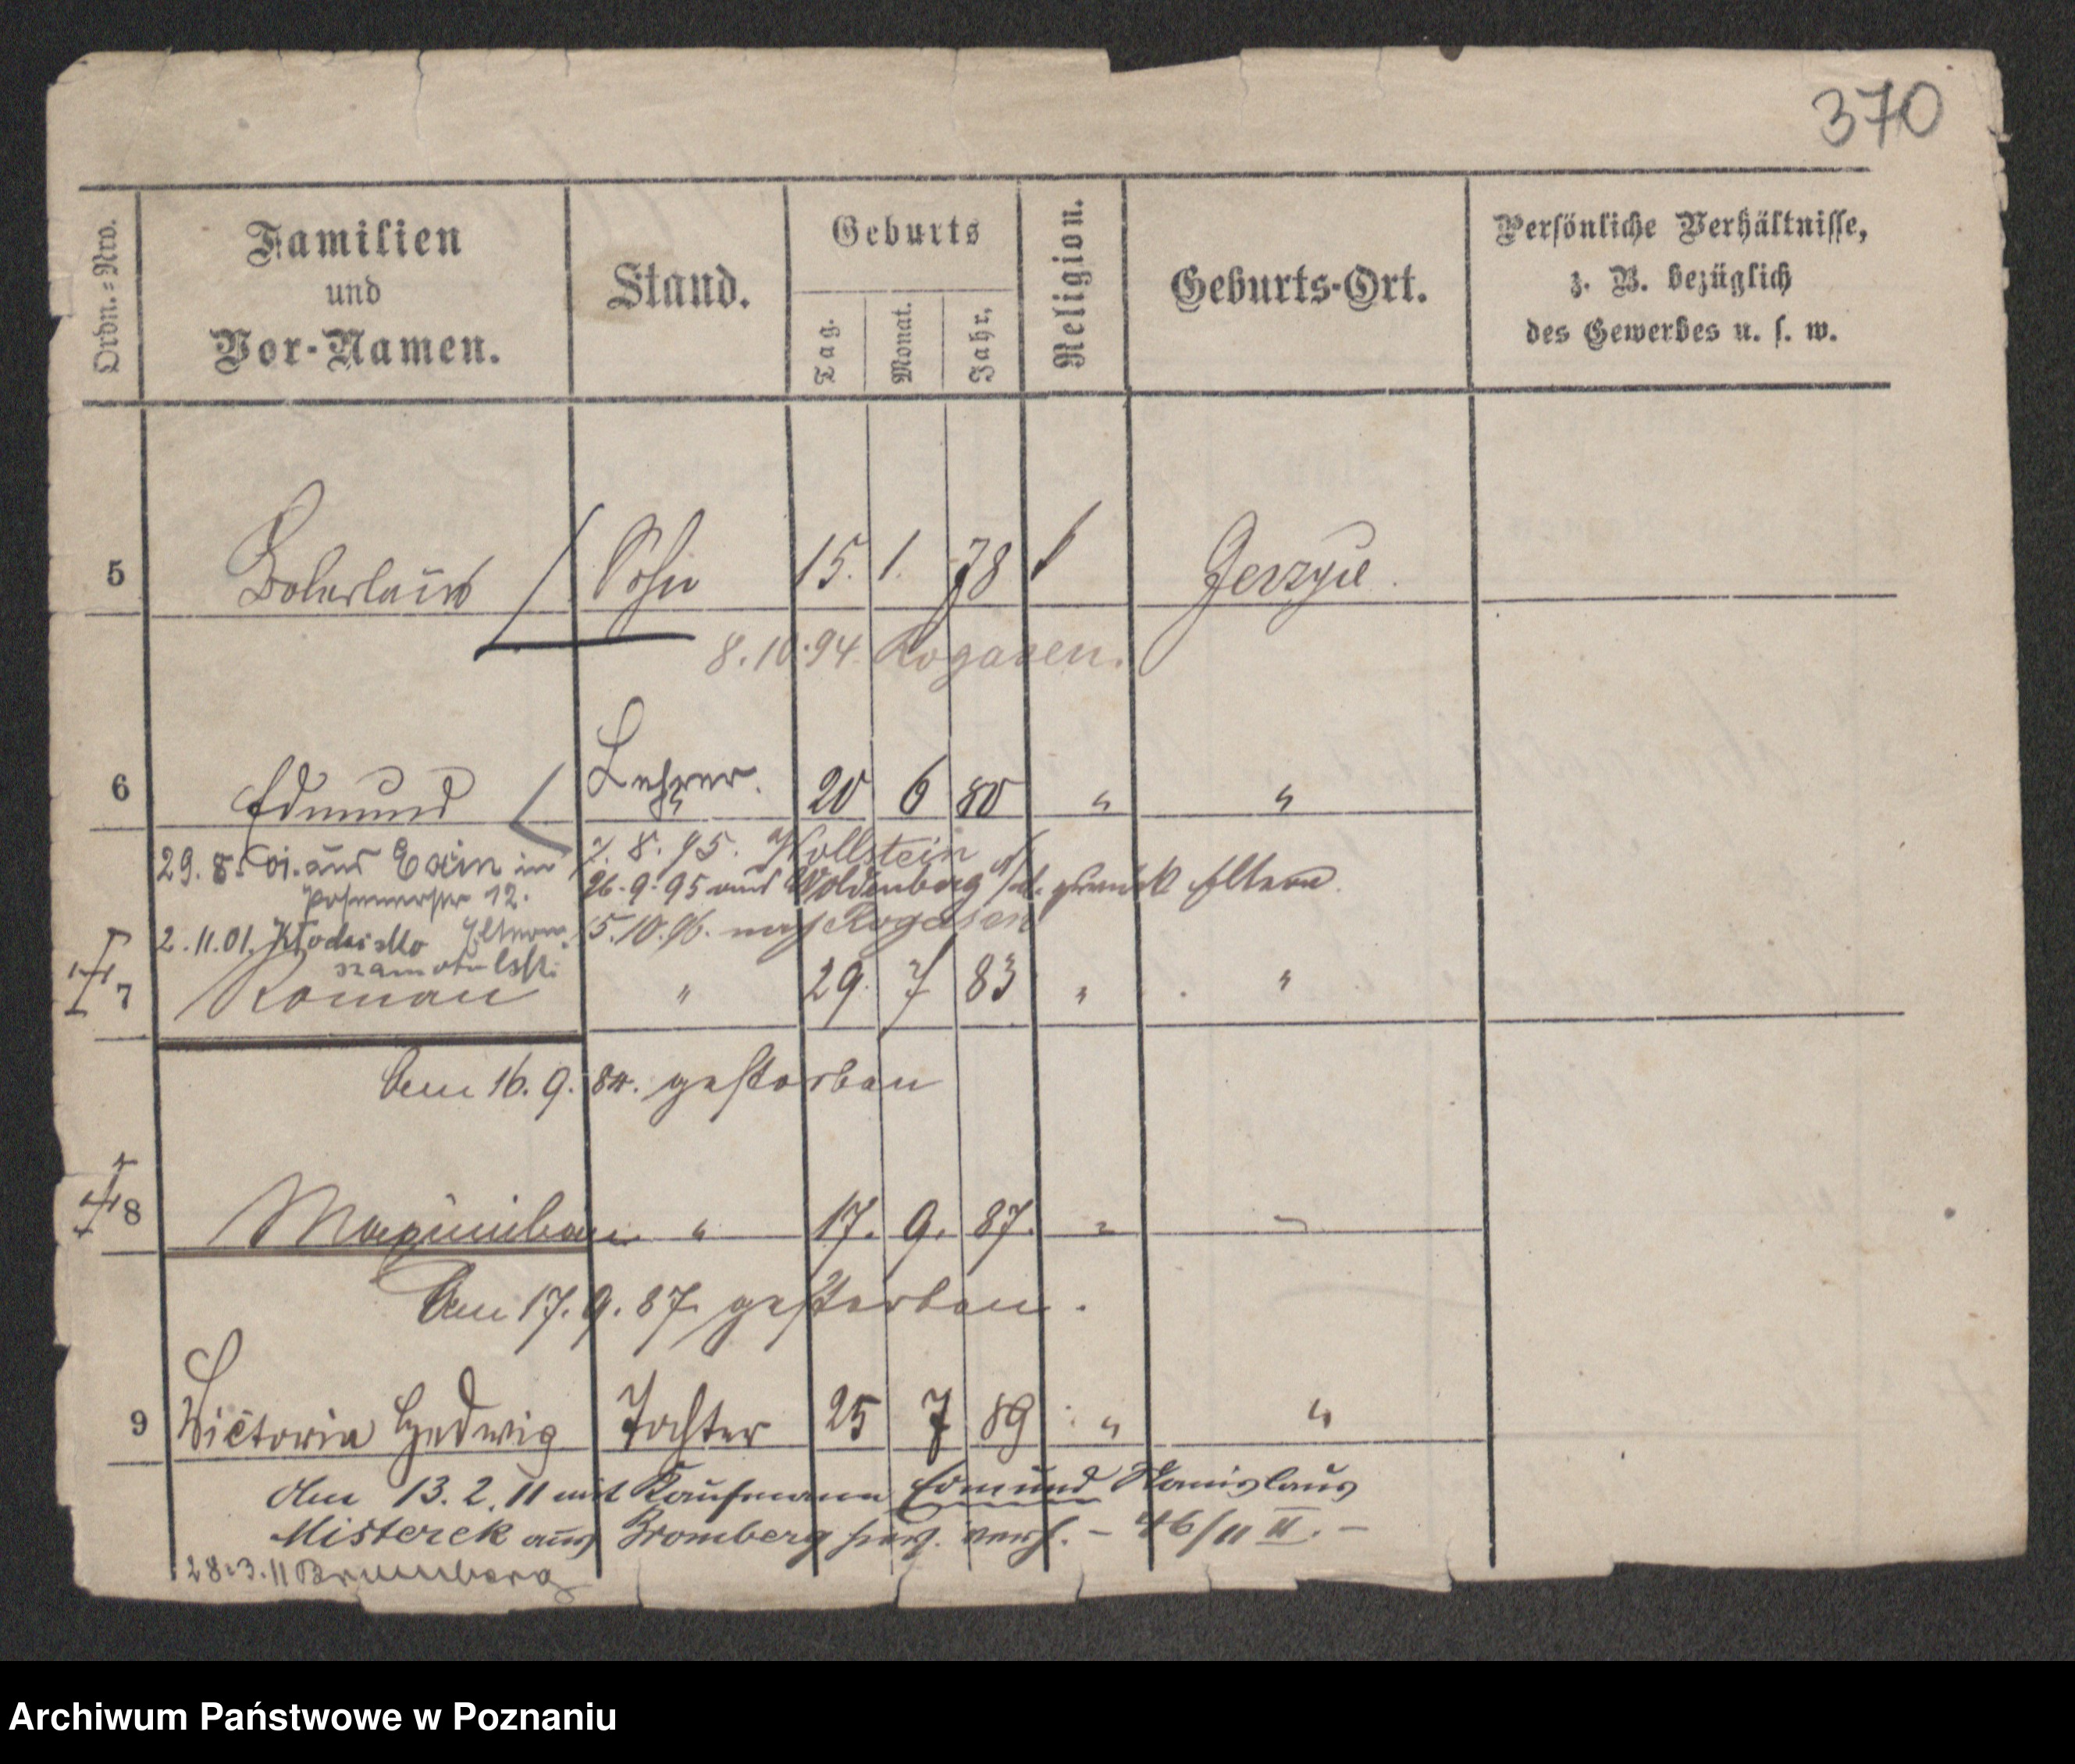 370
Ordn.-Nro.
Familien
und
Vor-Namen.
Stand.
Geburts
Tag.
Monat.
Jahr.
Religion.
Geburts-Ort.
Persönliche Verhältnisse,
z. B. bezüglich
des Gewerbes u. s. w.
5 Boleslaus Sohn 15. 1. 78 Jerzyce.
8.10.94. Rogasen.
6 Edmund Lehrer. 20 6 80 " "
7. 8. 95. Wollstein
29. 8. 01. aus Exin in
26. 9. 95 aus Woldenberg zurück Eltern.
Posenerstr 12.
2. 11. 01. Eltern 5. 10. 96. nach Rogasen
7 Roman " 29. 7 83 " "
den 16. 9. 84. gestorben
8 Maximilian " 17. 9. 87. " "
den 17. 9. 87. gestorben.
9 Victoria Hedwig Tochter 25 7 89 " "
den 13. 2. 11 mit Kaufmann Edmund Stanislaus
Misterek aus Bromberg verh. – 46/11 II. –
28.3.11 Bromberg
Archiwum Państwowe w Poznaniu